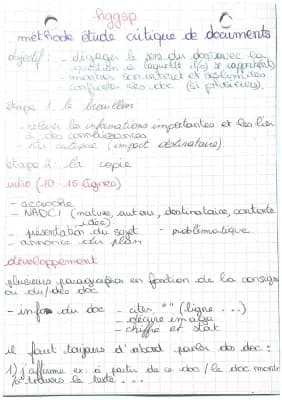 hggsp
méthode étude critique de documents
objectif : - dégager le sens du doc avec la
question à laquelle il(s) se rapporte(nt)
- montrer son intérêt et ses limites
- confronter les doc (si plusieurs)
étape 1 : le brouillon
- relever les informations importantes et les lier
à des connaissances
- être critique (impact destinataire)
étape 2 : la copie
intro (10-15 lignes)
- accroche
- NADCI (nature, auteur, destinataire, contexte
idées)
- présentation du sujet - problématique
- annonce du plan
développement
plusieurs paragraphes en fonction de la consigne
ou du/des doc
- infos du doc - citer "" (ligne ...)
- décrire image
- chiffre et stat
il faut toujours d'abord parler du doc :
1) j'affirme ex: à partir de ce doc / le doc montre
/ à travers le texte ...